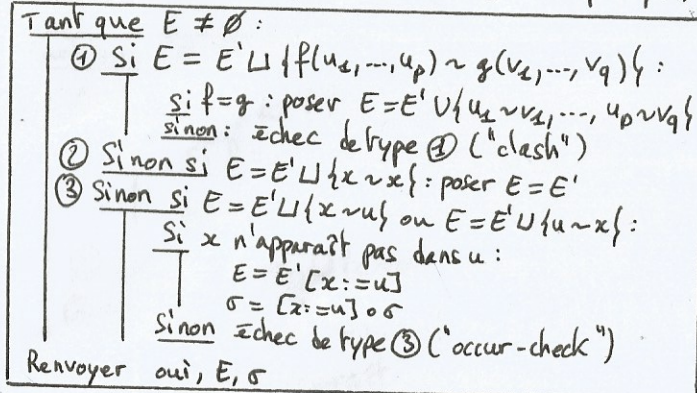 Tant que E ≠ ∅ :
① Si E = E' ⊔ {f(u₁,...,uₚ) ~ g(v₁,...,v_q)} :
si f=g : poser E=E' ∪ {u₁~v₁,..., uₚ~v_q}
sinon : échec de type ① ("clash")
② Sinon si E=E'⊔{x~x} : poser E=E'
③ Sinon si E=E'⊔{x~u} ou E=E'⊔{u~x} :
Si x n'apparaît pas dans u :
E=E'[x:=u]
σ= [x:=u]∘σ
Sinon échec de type ③ ("occur-check")
Renvoyer oui, E, σ